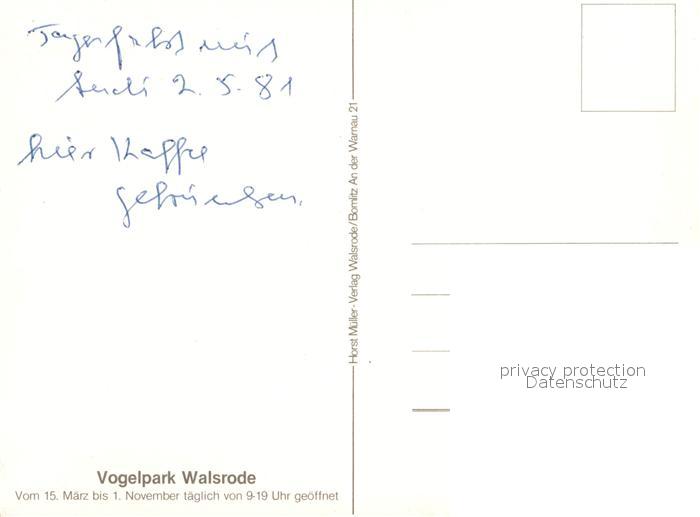 Tagesfahrt mit
2.5.81
hier Kaffee
getrunken.
Horst Müller-Verlag Walsrode/Bomlitz An der Warnau 21
privacy protection
Datenschutz
Vogelpark Walsrode
Vom 15. März bis 1. November täglich von 9-19 Uhr geöffnet